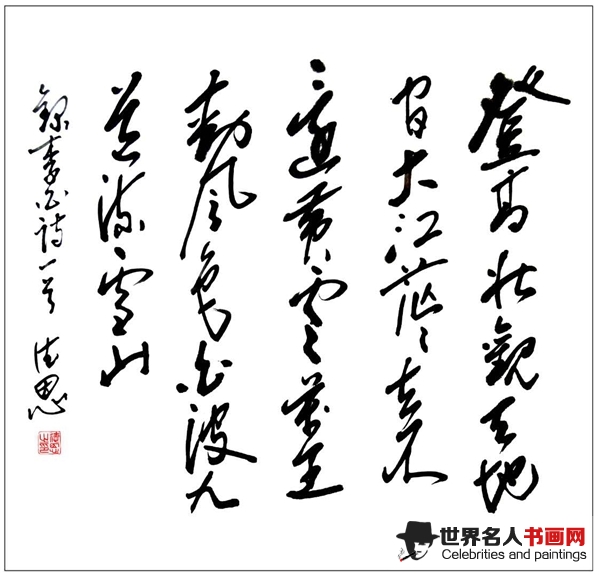 登高壯觀天地
間大江茫々去不
還黃雲萬里
動風色白波九
道流雪山
錄李白詩一首 德思
世界名人书画网
Celebrities and paintings